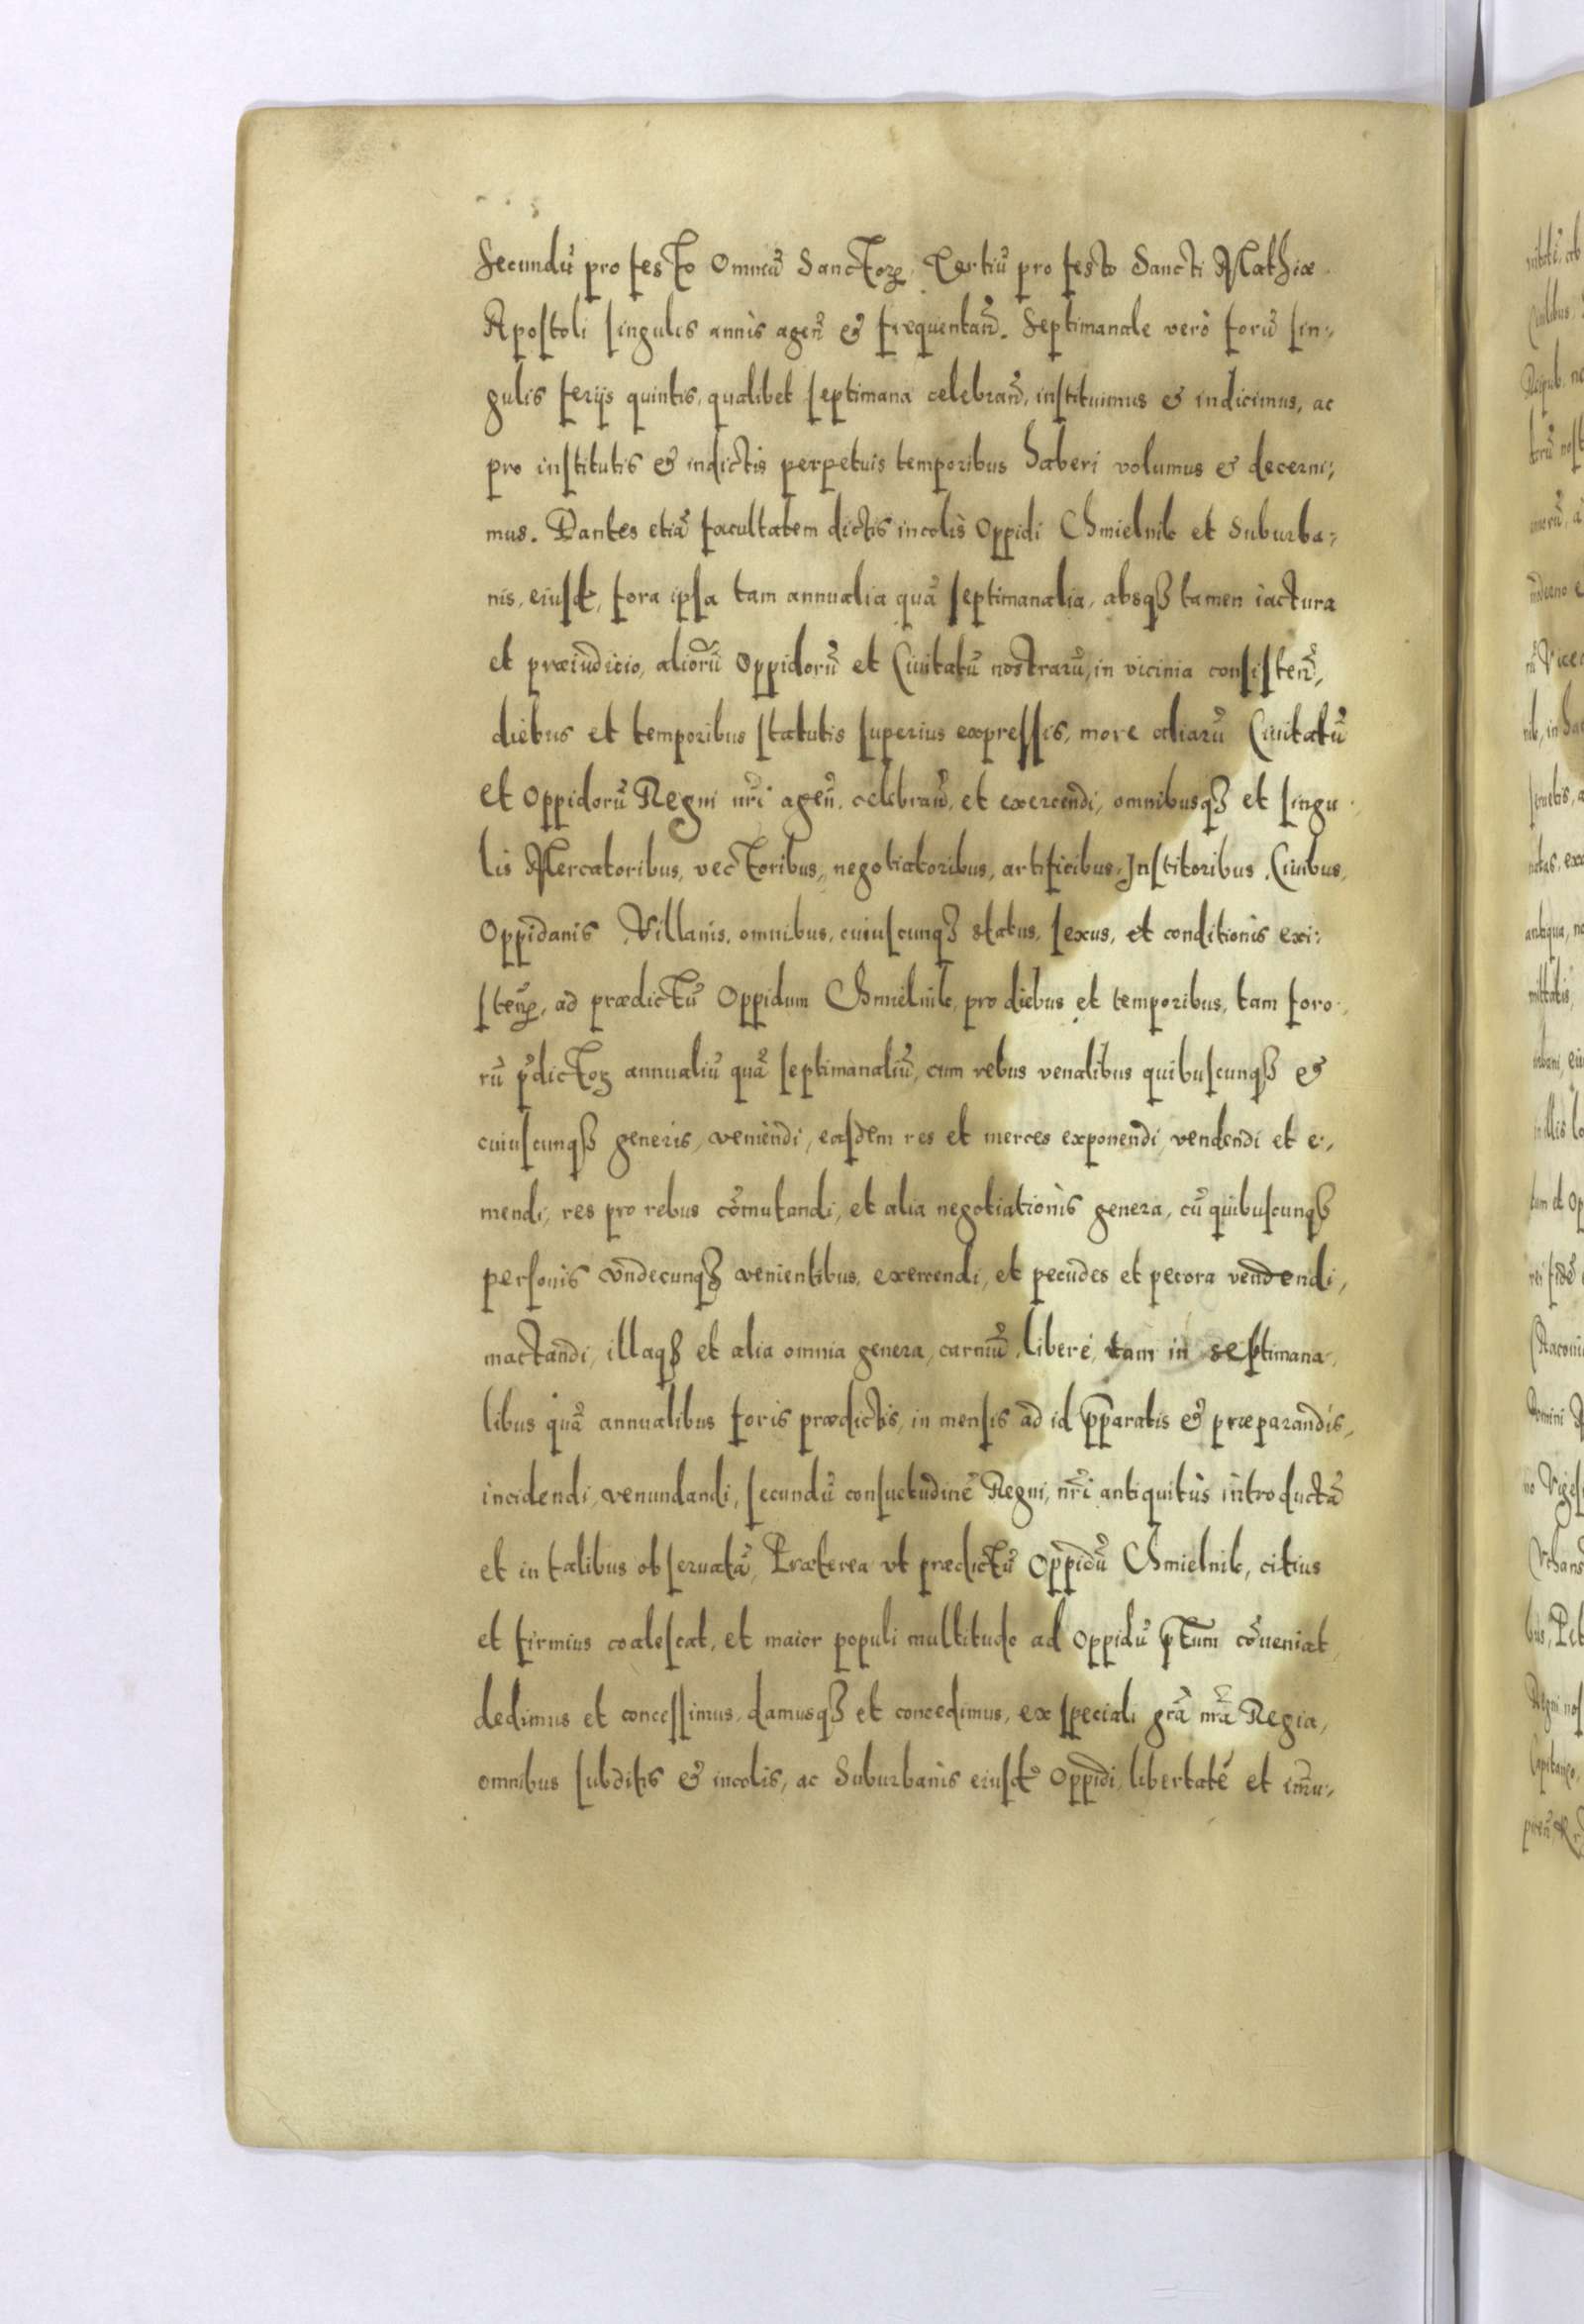 Secundũ pro festo Omniũ Sanctoꝝ, Tertiũ pro festo Sancti Mathiæ
Apostoli singulis annis ageñ & frequentañ. Septimanale verò forũ sin:
gulis ferijs quintis, qualibet septimana celebrañ, instituimus & indicimus, ac
pro institutis & indictis perpetuis temporibus haberi volumus & decerni:
mus. Dantes etiã facultatem dictis incolis Oppidi Chmielnik et Suburba:
nis, eiusd, fora ipsa tam annualia quã septimanalia, absqꝫ tamen iactura
et præiudicio, aliorũ Oppidorũ et Ciuitatũ nostrarũ, in vicinia consisteñ,
diebus et temporibus statutis superius expressis, more aliarũ Ciuitatũ
et Oppidorũ Regni nr̃i ageñ. celebrañ, et exercendi, omnibusqꝫ et singu
lis Mercatoribus, vectoribus, negotiatoribus, artificibus, Institoribus, Ciuibus,
Oppidanis Villanis, omnibus, cuiuscunqꝫ status, sexus, et conditionis exi:
steñꝝ, ad prædictũ Oppidum Chmielnik, pro diebus et temporibus, tam foro
rũ p̃dictoꝝ annualiũ quã septimanaliũ, cum rebus venalibus quibuscunqꝫ &
cuiuscunqꝫ generis, veniendi, easdem res et merces exponendi, vendendi et e:
mendi, res pro rebus cõmutandi, et alia negotiationis genera, cũ quibuscunqꝫ
personis vndecunqꝫ venientibus, exercendi, et pecudes et pecora vendendi,
mactandi, illaqꝫ et alia omnia genera, carniũ, liberè, tam in septimana
libus quã annualibus foris prædictis, in mensis ad id p̃paratis & præparandis,
incidendi, venundandi, secundũ consuetudinẽ Regni, nr̃i antiquitùs introductã
et in talibus obseruatã, Præterea vt prædictũ Oppidũ Chmielnik, citius
et firmius coalescat, et maior populi multitudo ad Oppidũ p̃tum cõueniat,
dedimus et concessimus, damusqꝫ et concedimus, ex speciali gr̃a nr̃a Regia,
omnibus subditis & incolis, ac Suburbanis eiusd Oppidi, libertatẽ et im̃u: